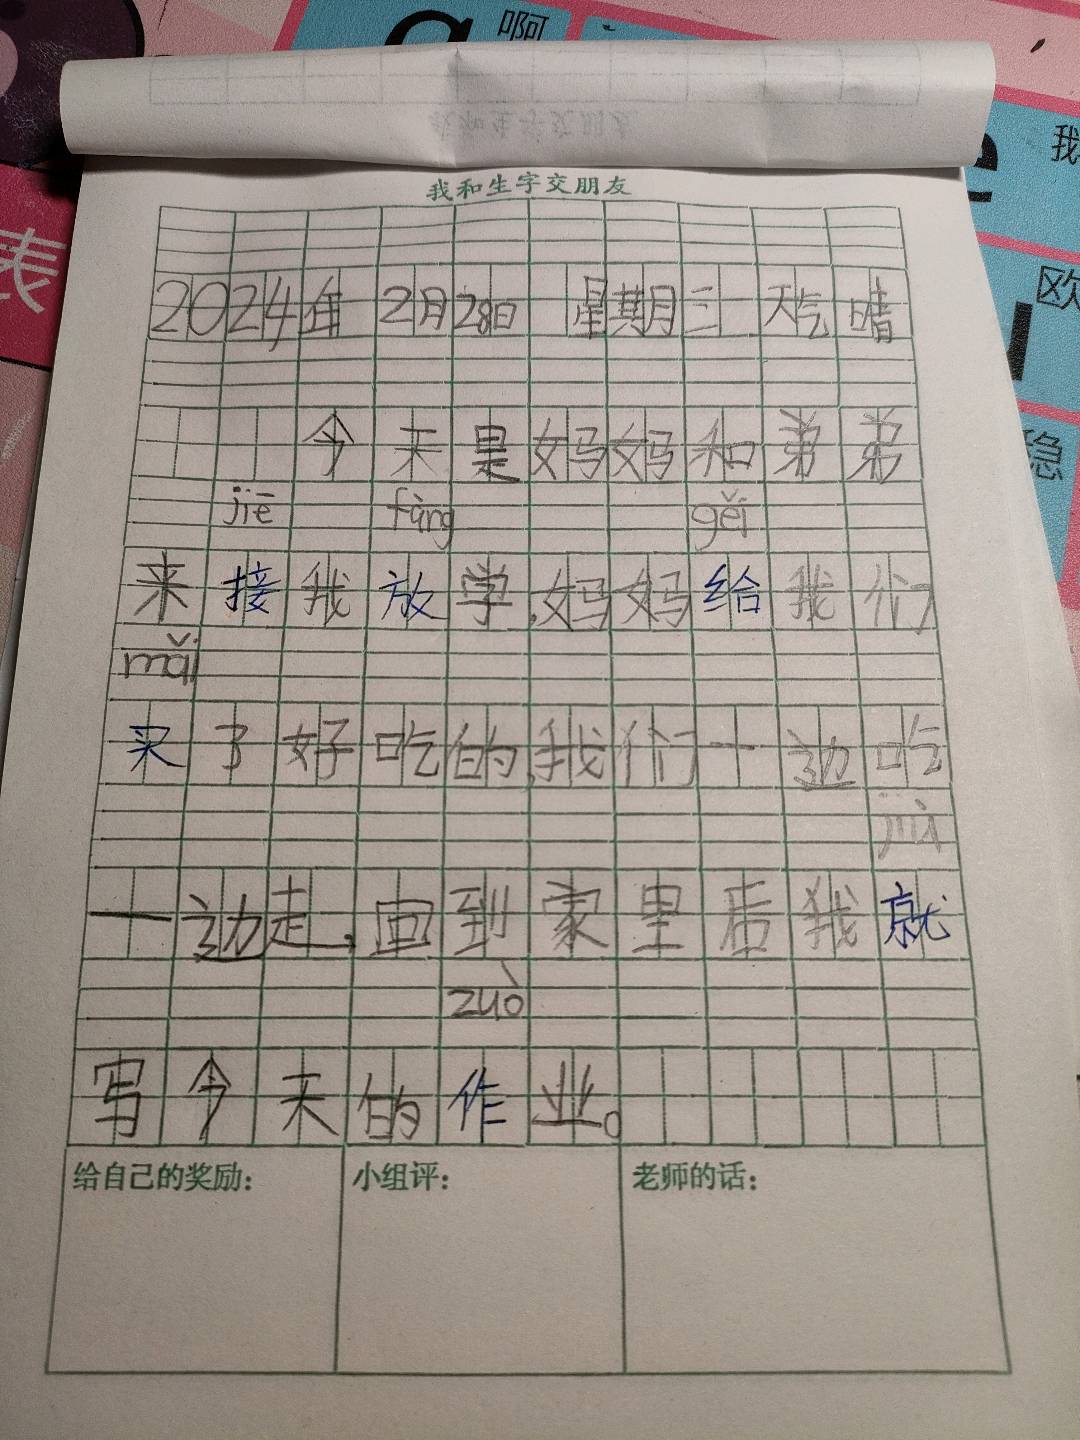 啊
我
欧
稳
表
我和生字交朋友
2024年 2月28日 星期三 天气 晴
今天是妈妈和弟弟
jiē fàng gěi
来接我放学,妈妈给我们
mǎi
买了好吃的,我们一边吃
jiù
一边走,回到家里后我就
zuò
写今天的作业。
给自己的奖励:
小组评:
老师的话: